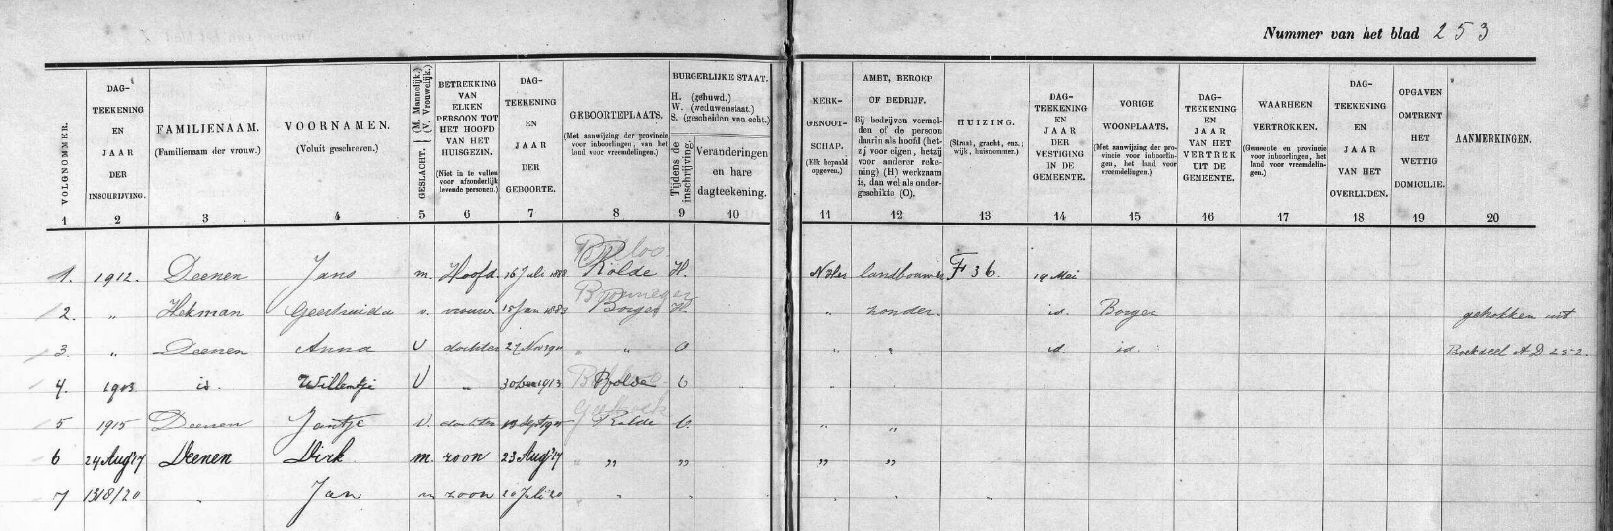 Nummer van het blad 253
VOLGNOMMER.
DAG-
TEEKENING
EN
JAAR
DER
INSCHRIJVING.
FAMILIENAAM.
(Familienaam der vrouw.)
VOORNAMEN.
(Voluit geschreven.)
GESLACHT. (M. Mannelijk.) (V. Vrouwelijk.)
BETREKKING
VAN
ELKEN
PERSOON TOT
HET HOOFD
VAN HET
HUISGEZIN.
(Niet in te vullen
voor afzonderlijk
levende personen.)
DAG-
TEEKENING
EN
JAAR
DER
GEBOORTE.
GEBOORTEPLAATS.
(Met aanwijzing der provincie
voor inboorlingen, van het
land voor vreemdelingen.)
BURGERLIJKE STAAT.
H. (gehuwd.)
W. (weduwenstaat.)
S. (gescheiden van echt.)
Tijdens de
inschrijving.
Veranderingen
en hare
dagteekening.
KERK-
GENOOT-
SCHAP.
(Elk bepaald
opgeven.)
AMBT, BEROEP
OF BEDRIJF.
Bij bedrijven vermel-
den of de persoon
daarin als hoofd (het-
zij voor eigen, hetzij
voor anderer reke-
ning) (H) werkzaam
is, dan wel als onder-
geschikte (O).
HUIZING.
(Straat, gracht, enz.;
wijk, huisnommer.)
DAG-
TEEKENING
EN
JAAR
DER
VESTIGING
IN DE
GEMEENTE.
VORIGE
WOONPLAATS.
(Met aanwijzing der pro-
vincie voor inboorlin-
gen, het land voor
vreemdelingen.)
DAG-
TEEKENING
EN
JAAR
VAN HET
VERTREK
UIT DE
GEMEENTE.
WAARHEEN
VERTROKKEN.
(Gemeente en provincie
voor inboorlingen, het
land voor vreemdelin-
gen.)
DAG-
TEEKENING
EN
JAAR
VAN HET
OVERLIJDEN.
OPGAVEN
OMTRENT
HET
WETTIG
DOMICILIE.
AANMERKINGEN.
1 2 3 4 5 6 7 8 9 10 11 12 13 14 15 16 17 18 19 20
1. 1912. Deenen Jans m. Hoofd 16 Juli Rolde H. landbouwer F 36. 19 Mei
Bonneger
2. " Hekman Geertruida v. vrouw 15 Jan 1889 Borger H. " zonder. id. Borger getrokken uit
3. " Deenen Anna V dochter " " O " " id id. A D 252.
4. 1903 id. Willemtje V " 1913 Rolde O "
5 1915 Deenen Jantje V. dochter Rolde O. " "
6 24 Aug 17 Deenen Dirk m. zoon 23 Aug 17 " " " " "
7 13/8/20 " Jan m zoon 20 Juli 20 " " " " "